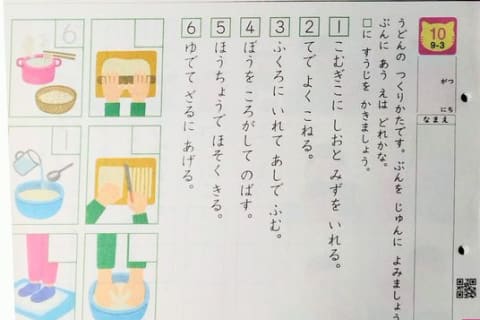 10
9-3
がつ
にち
なまえ
うどんの つくりかたです。ぶんを じゅんに よみましょう
ぶんに あう えは どれかな。
□に すうじを かきましょう。
1 こむぎこに しおと みずを いれる。
2 てで よく こねる。
3 ふくろに いれて あしで ふむ。
4 ぼうを ころがして のばす。
5 ほうちょうで ほそく きる。
6 ゆでて ざるに あげる。
6
1